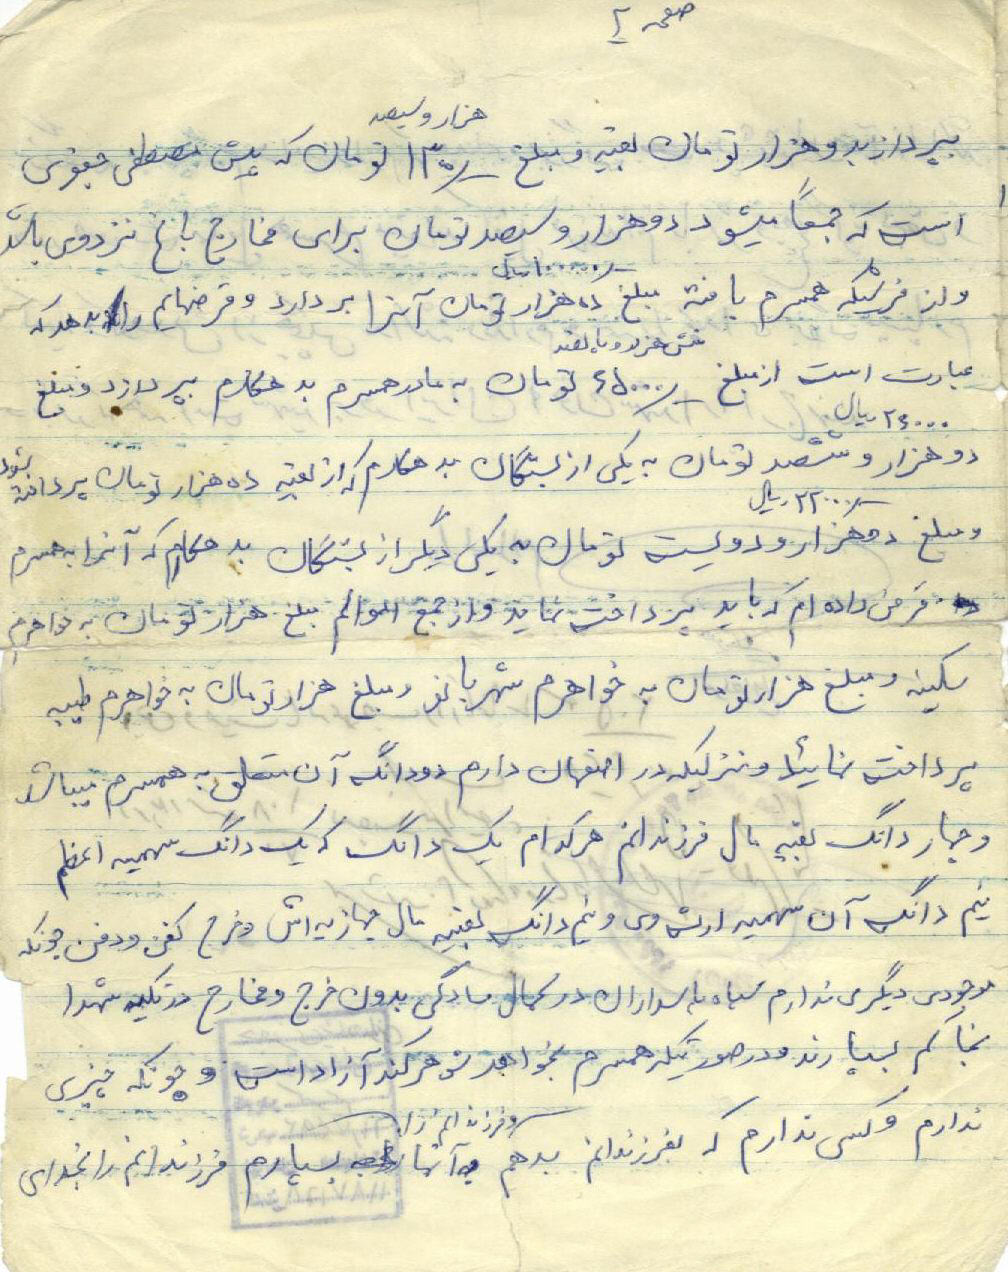 صفحه ۲
هزار و سیصد
بپردازید و هزار تومان بقیه و مبلغ ۱۳۰۰/ تومان که پیش مصطفی جعفری
است که جمعاً میشود دو هزار و سیصد تومان برای مخارج باغ نزد وی باشد
۱۰۰۰۰۰/ ریال
و از فرشیکه همسرم بافته مبلغ ده هزار تومان آنرا بردارد و قرضهایم را بدهد که
شش هزار و پانصد
عبارت است از مبلغ ۶۵۰۰۰/ تومان به مادر همسرم بدهکارم بپردازد و مبلغ
۲۶۰۰۰ ریال
دو هزار و ششصد تومان به یکی از بستگان بدهکارم که از بقیه ده هزار تومان پرداخته شود
۲۲۰۰۰/ ریال
و مبلغ دو هزار و دویست تومان به یکی دیگر از بستگان بدهکارم که آنرا به همسرم
قرض داده ام که باید پرداخت نماید و از جمع اموالم مبلغ هزار تومان به خواهرم
سکینه و مبلغ هزار تومان به خواهرم شهربانو و مبلغ هزار تومان به خواهرم طیبه
پرداخت نمائید و منزلیکه در اصفهان دارم دودانگ آن متعلق به همسرم میباشد
و چهار دانگ بقیه مال فرزندانم هر کدام یک دانگ که یک دانگ سهمیه اعظم
نیم دانگ آن سهمیه ارث وی و نیم دانگ بقیه مال جهازیه اش و خرج کفن و دفن چونکه
موجودی دیگری ندارم سپاه پاسداران در کمال سادگی بدون خرج و مخارج در تکیه شهدا
بخاکم بسپارند و در صورتیکه همسرم بخواهد شوهر کند آزاد است و چونکه چیزی
و فرزندانم را
ندارم و کسی ندارم که بفرزندانم بدهم به آنها بسپارم فرزندانم را بخدای